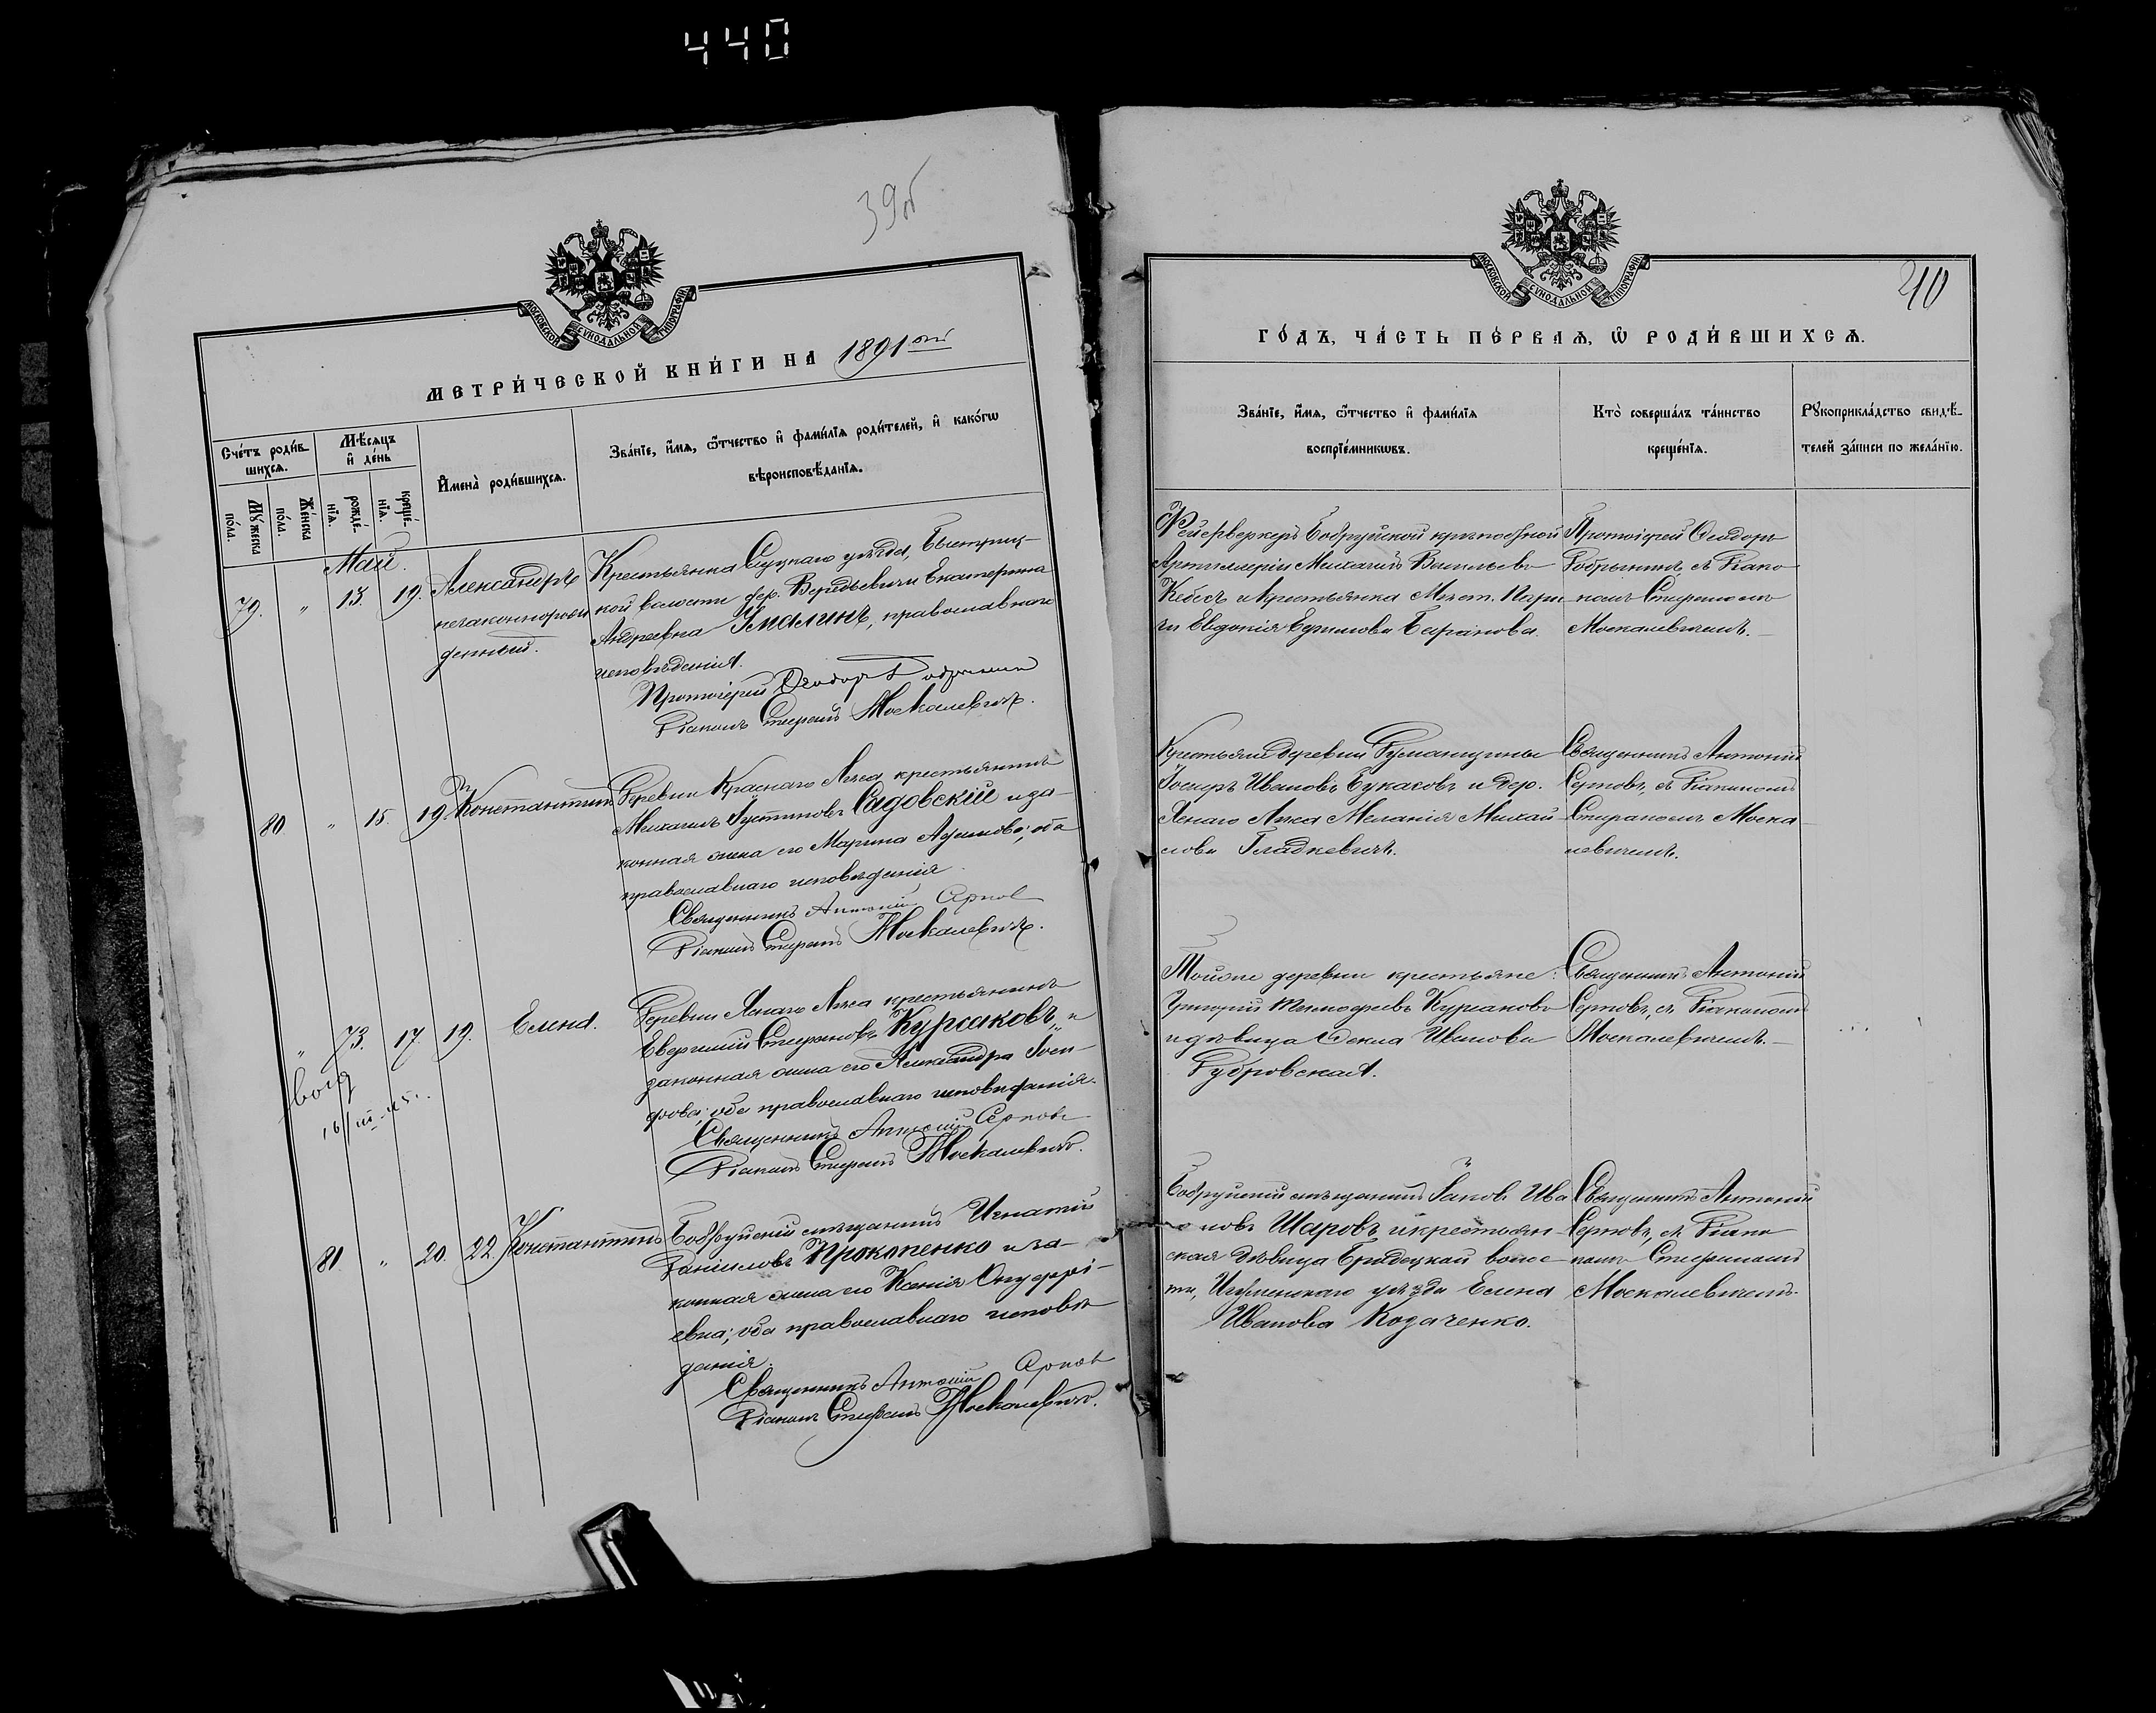 440
39об
МОСКОВСКОЙ СѴНОДАЛЬНОЙ ТИПОГРАФІИ
МЕТРИ́ЧЕСКОЙ КНИ́ГИ НА 1891 ый
Сче́тъ роди́в-
шихсѧ.
Мѣ́сѧцъ
и҆ де́нь
И҆мена̀ роди́вшихсѧ.
Зва́нїе, и҆́мѧ, ѻ҆́тчество и҆ фами́лїѧ роди́телей, и҆ како́гѡ
вѣроисповѣ́данїѧ.
Мꙋ́жеска
по́ла.
Же́нска
по́ла.
рожде́-
нїѧ.
креще́-
нїѧ.
Май.
79. " 13. 19. Александръ
незаконнорож
денный.
Крестьянка Слуцкаго уѣзда, Быстриц-
кой волости дер. Вередьевичи Екатерина
Андреевна Умалинъ, православнаго
исповѣданія.
Протоіерей Ѳеодоръ
Діаконъ Стефанъ Москалевичъ.
80. " 15. 19. Константинъ
Деревни Краснаго Лѣса крестьянинъ
Михаилъ Іустиновъ Садовскій и за-
конная жена его Марина Адамова; оба
православнаго исповѣданія.
Священникъ Антоній Серновъ
Діаконъ Стефанъ Москалевичъ.
" 73. 17. 19. Елена.
16/III-45 г.
Деревни Яснаго Лѣса крестьянинъ
Евергетій Стефановъ Курсаковъ и
законная жена его Александра Іоси-
фова; оба православнаго исповѣданія.
Священникъ Антоній Серновъ
Діаконъ Стефанъ Москалевичъ.
81. " 20. 22. Константинъ
Бобруйскій мѣщанинъ Игнатій
Даніиловъ Прокопенко и за-
конная жена его Ксенія Онуфрі-
евна; оба православнаго исповѣ
данія.
Священникъ Антоній Серновъ
Діаконъ Стефанъ Москалевичъ.
40
МОСКОВСКОЙ СѴНОДАЛЬНОЙ ТИПОГРАФІИ
ГО́ДЪ, ЧА́СТЬ ПЕ́РВАѦ, Ѡ҆ РОДИ́ВШИХСѦ.
Зва́нїе, и҆́мѧ, ѻ҆́тчество и҆ фами́лїѧ
воспрїе́мникѡвъ.
Кто̀ соверша́лъ та́инство
креще́нїѧ.
Рꙋкоприкла́дство свидѣ́-
телей за́писи по жела́нїю.
Фейерверкеръ Бобруйской крѣпостной
Артиллеріи Михаилъ Васильевъ
Кебесъ и крестьянка Мѣст. Пари
чи Евдокія Ефимова Баранова.
Протоіерей Ѳеодоръ
съ Діако
номъ Стефаномъ
Москалевичемъ.
Крестьяне деревни Думанщины
Іосифъ Ивановъ Букасовъ и дер.
Яснаго Лѣса Меланія Михай
лова Гладкевичъ.
Священникъ Антоній
Серновъ, съ Діакономъ
Стефаномъ Моска
левичемъ.
Тойже деревни крестьяне:
Григорій Тимофеевъ Курсаковъ
и дѣвица Ѳекла Иванова
Дубровская.
Священникъ Антоній
Серновъ, съ Діакономъ
Москалевичемъ.
Бобруйскій мѣщанинъ Іаковъ Ива
новъ Шаровъ и крестьян-
ская дѣвица Бродецкой волос-
ти, Игуменскаго уѣзда Елена
Иванова Козаченко.
Священникъ Антоній
Серновъ, съ Діако
номъ Стефаномъ
Москалевичемъ.